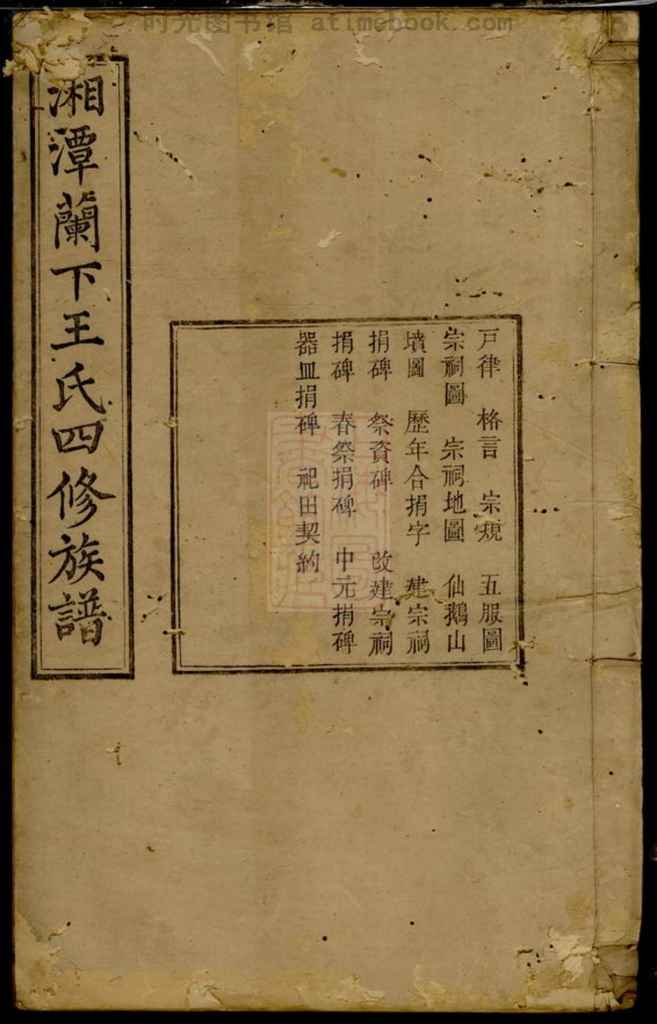 时光图书馆 atimebook.com
湘潭蘭下王氏四修族譜
戸律 格言 宗規 五服圖
宗祠圖 宗祠地圖 仙鵝山
墳圖 歷年合捐字 建宗祠
捐碑 祭資碑 改建宗祠
捐碑 春祭捐碑 中元捐碑
器皿捐碑 祀田契約